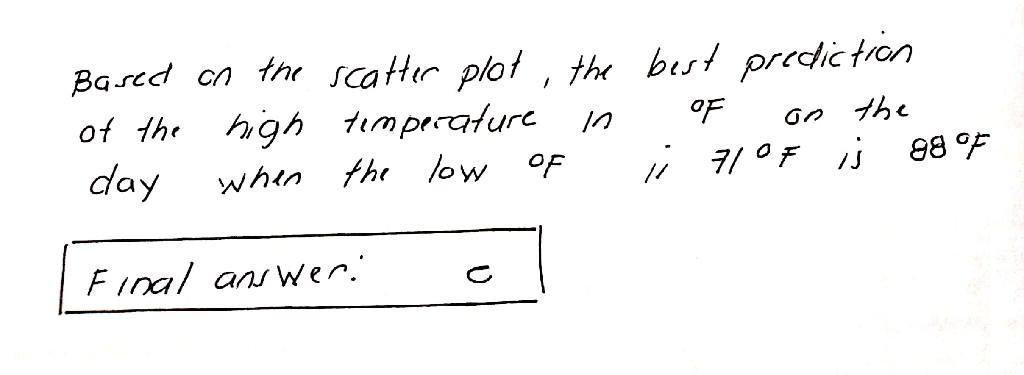 Based on the scatter plot, the best prediction
of the high temperature in °F on the
day when the low °F is 71°F is 88°F
Final answer: C